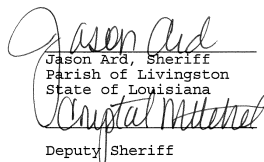 Jason Ard
Jason Ard, Sheriff
Parish of Livingston
State of Louisiana
Crystal Mitchel
Deputy Sheriff